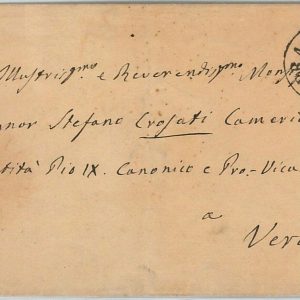 Illustrissmo e Reverendissmo Mons
nor Stefano Crosati Cameri
tità Pio IX. Canonico e Pro-Vica
a
Vero